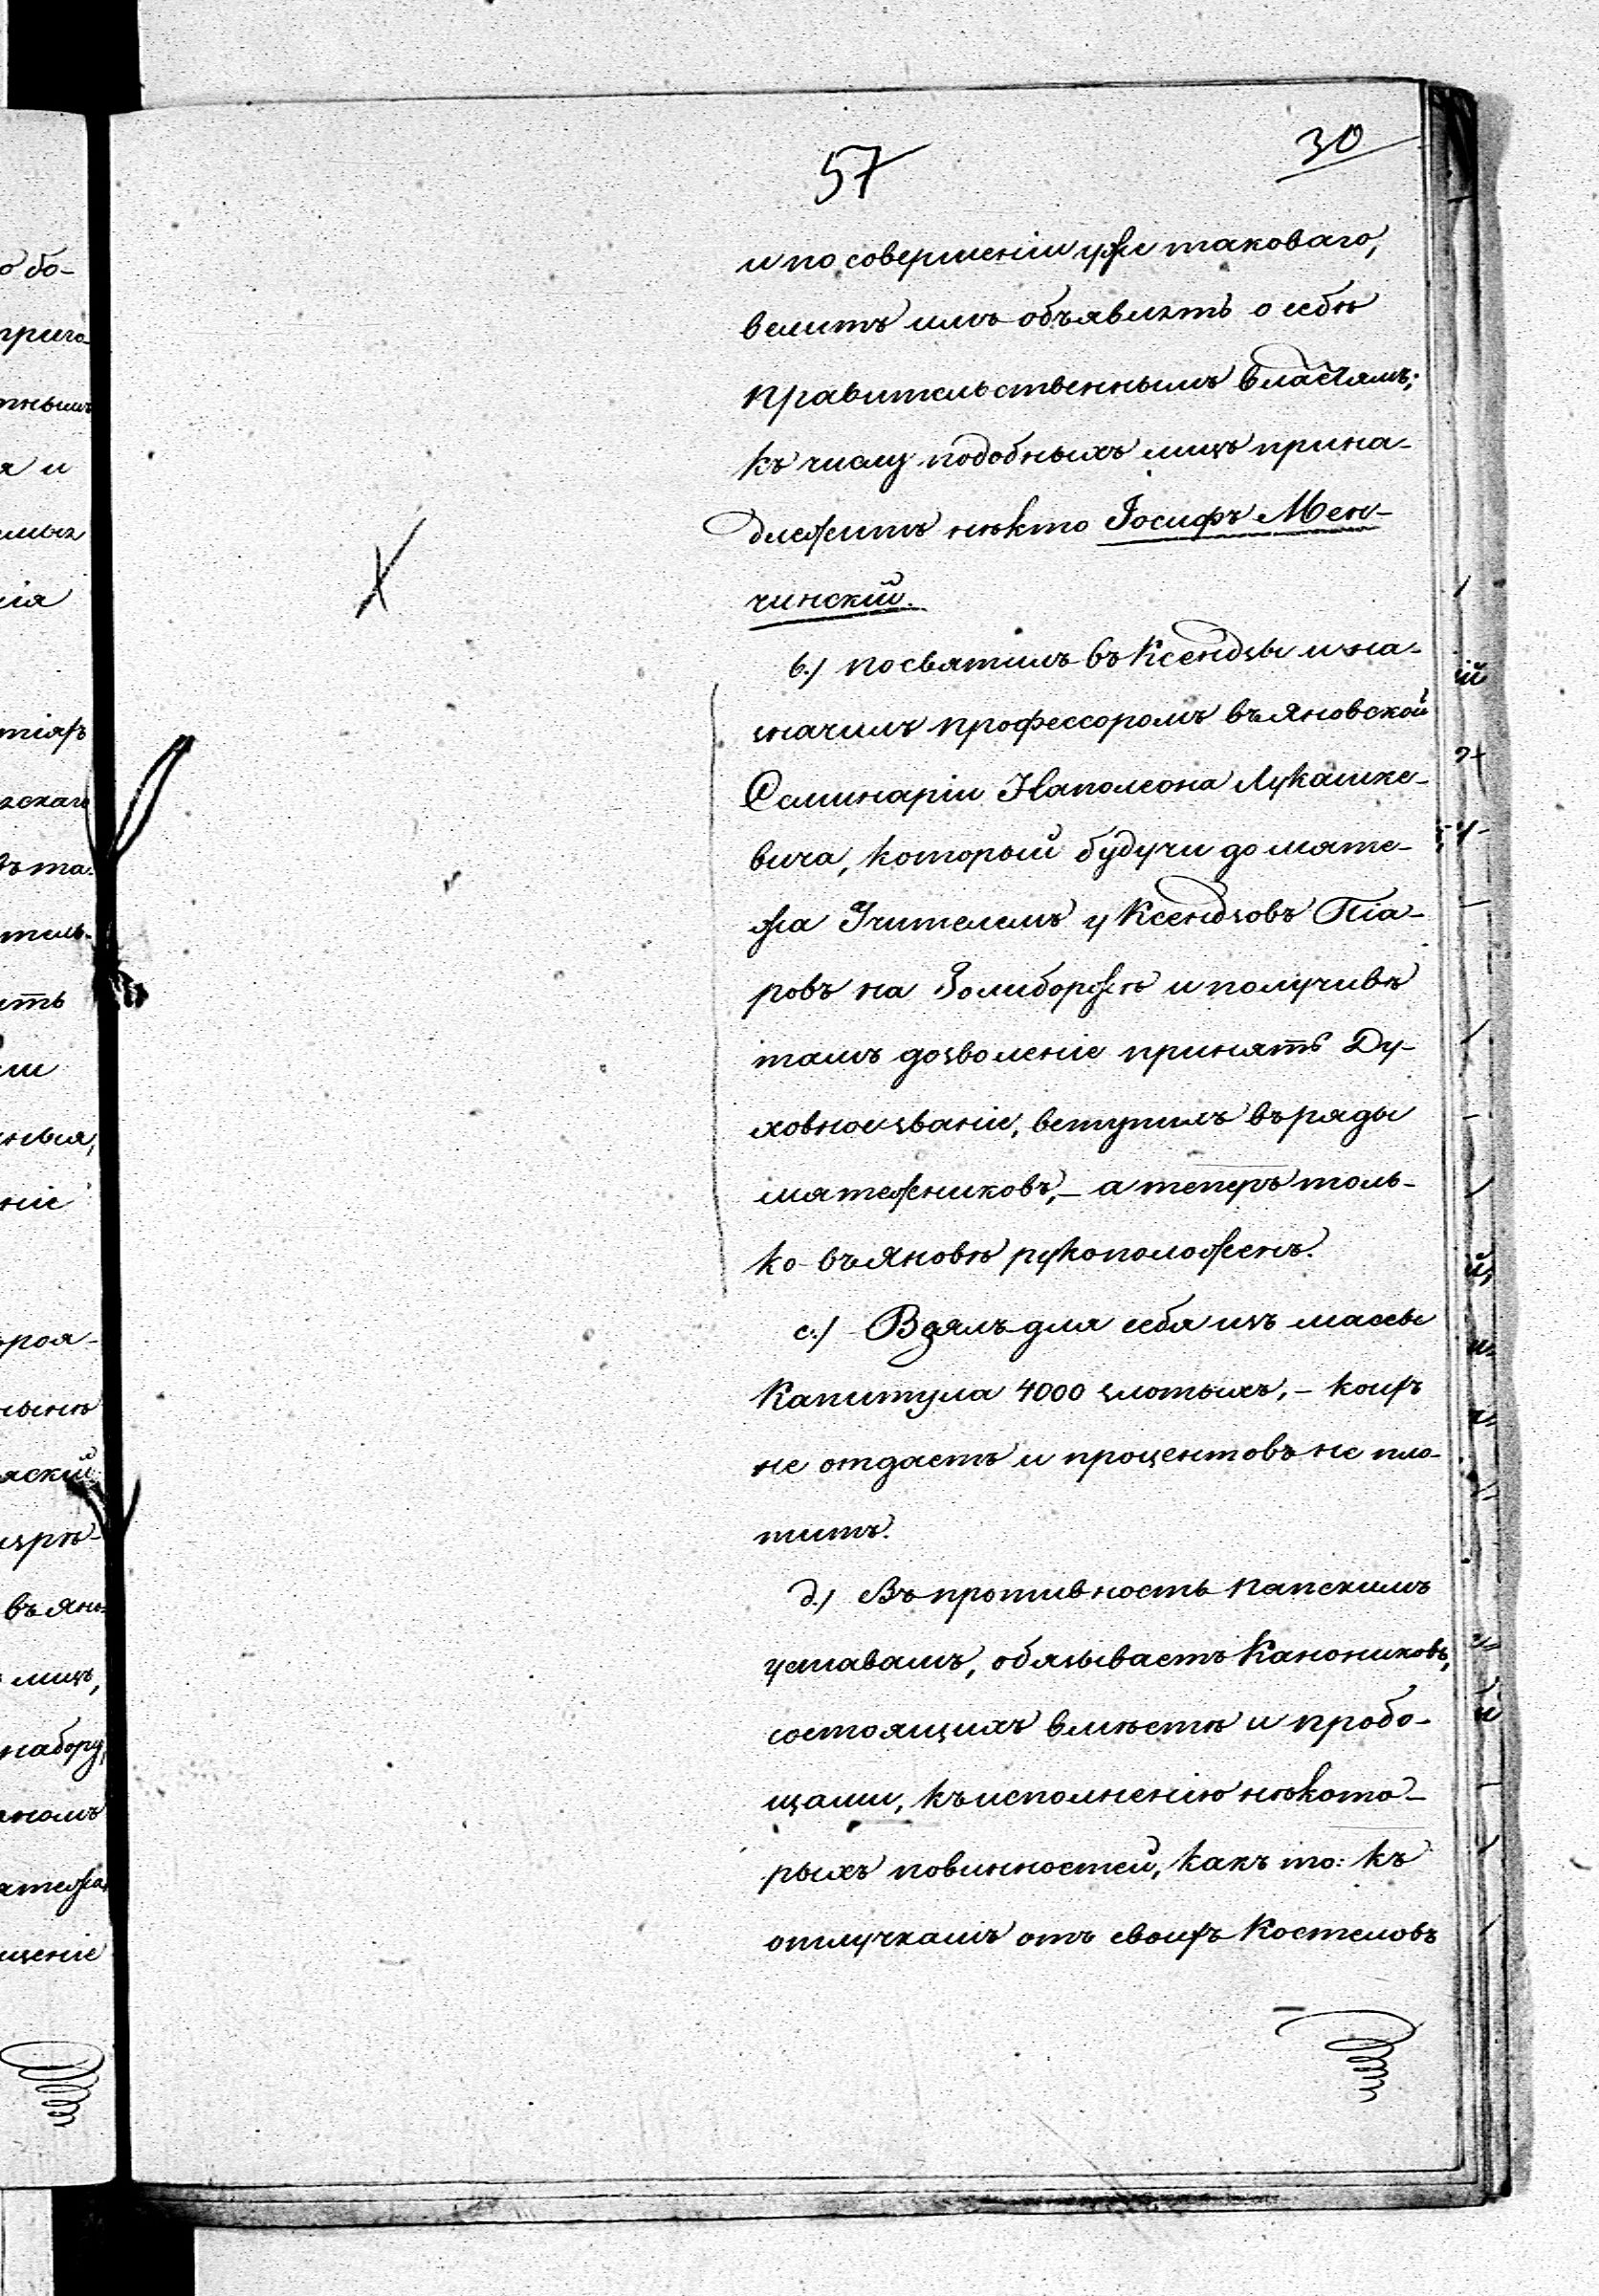 57
30
и по совершеніи уже таковаго,
велитъ имъ объявить о себѣ
правительственнымъ властямъ;
къ числу подобныхъ лицъ прина-
длежитъ нѣкто Іосифъ Мен-
чинскій.
b./ посвятилъ въ Ксендзы и на-
значилъ профессоромъ въ Яновской
Семинаріи Наполеона Лукашке-
вича, который будучи до мяте-
жа Учителемъ у Ксендзовъ Піа-
ровъ на Золиборжѣ и получивъ
тамъ дозволеніе принять Ду-
ховное званіе, вступилъ въ ряды
мятежниковъ, – а теперь толь-
ко въ Яновѣ рукоположенъ.
c./ Взялъ для себя изъ массы
Капитула 4000 злотыхъ, – коихъ
не отдаетъ и процентовъ не пла-
титъ.
d./ Въ противность папскимъ
уставамъ, обязываетъ Канониковъ,
состоящихъ вмѣстѣ и пробо-
щами, къ исполненію нѣкото-
рыхъ повинностей, какъ то: къ
отлучкамъ отъ своихъ Костеловъ